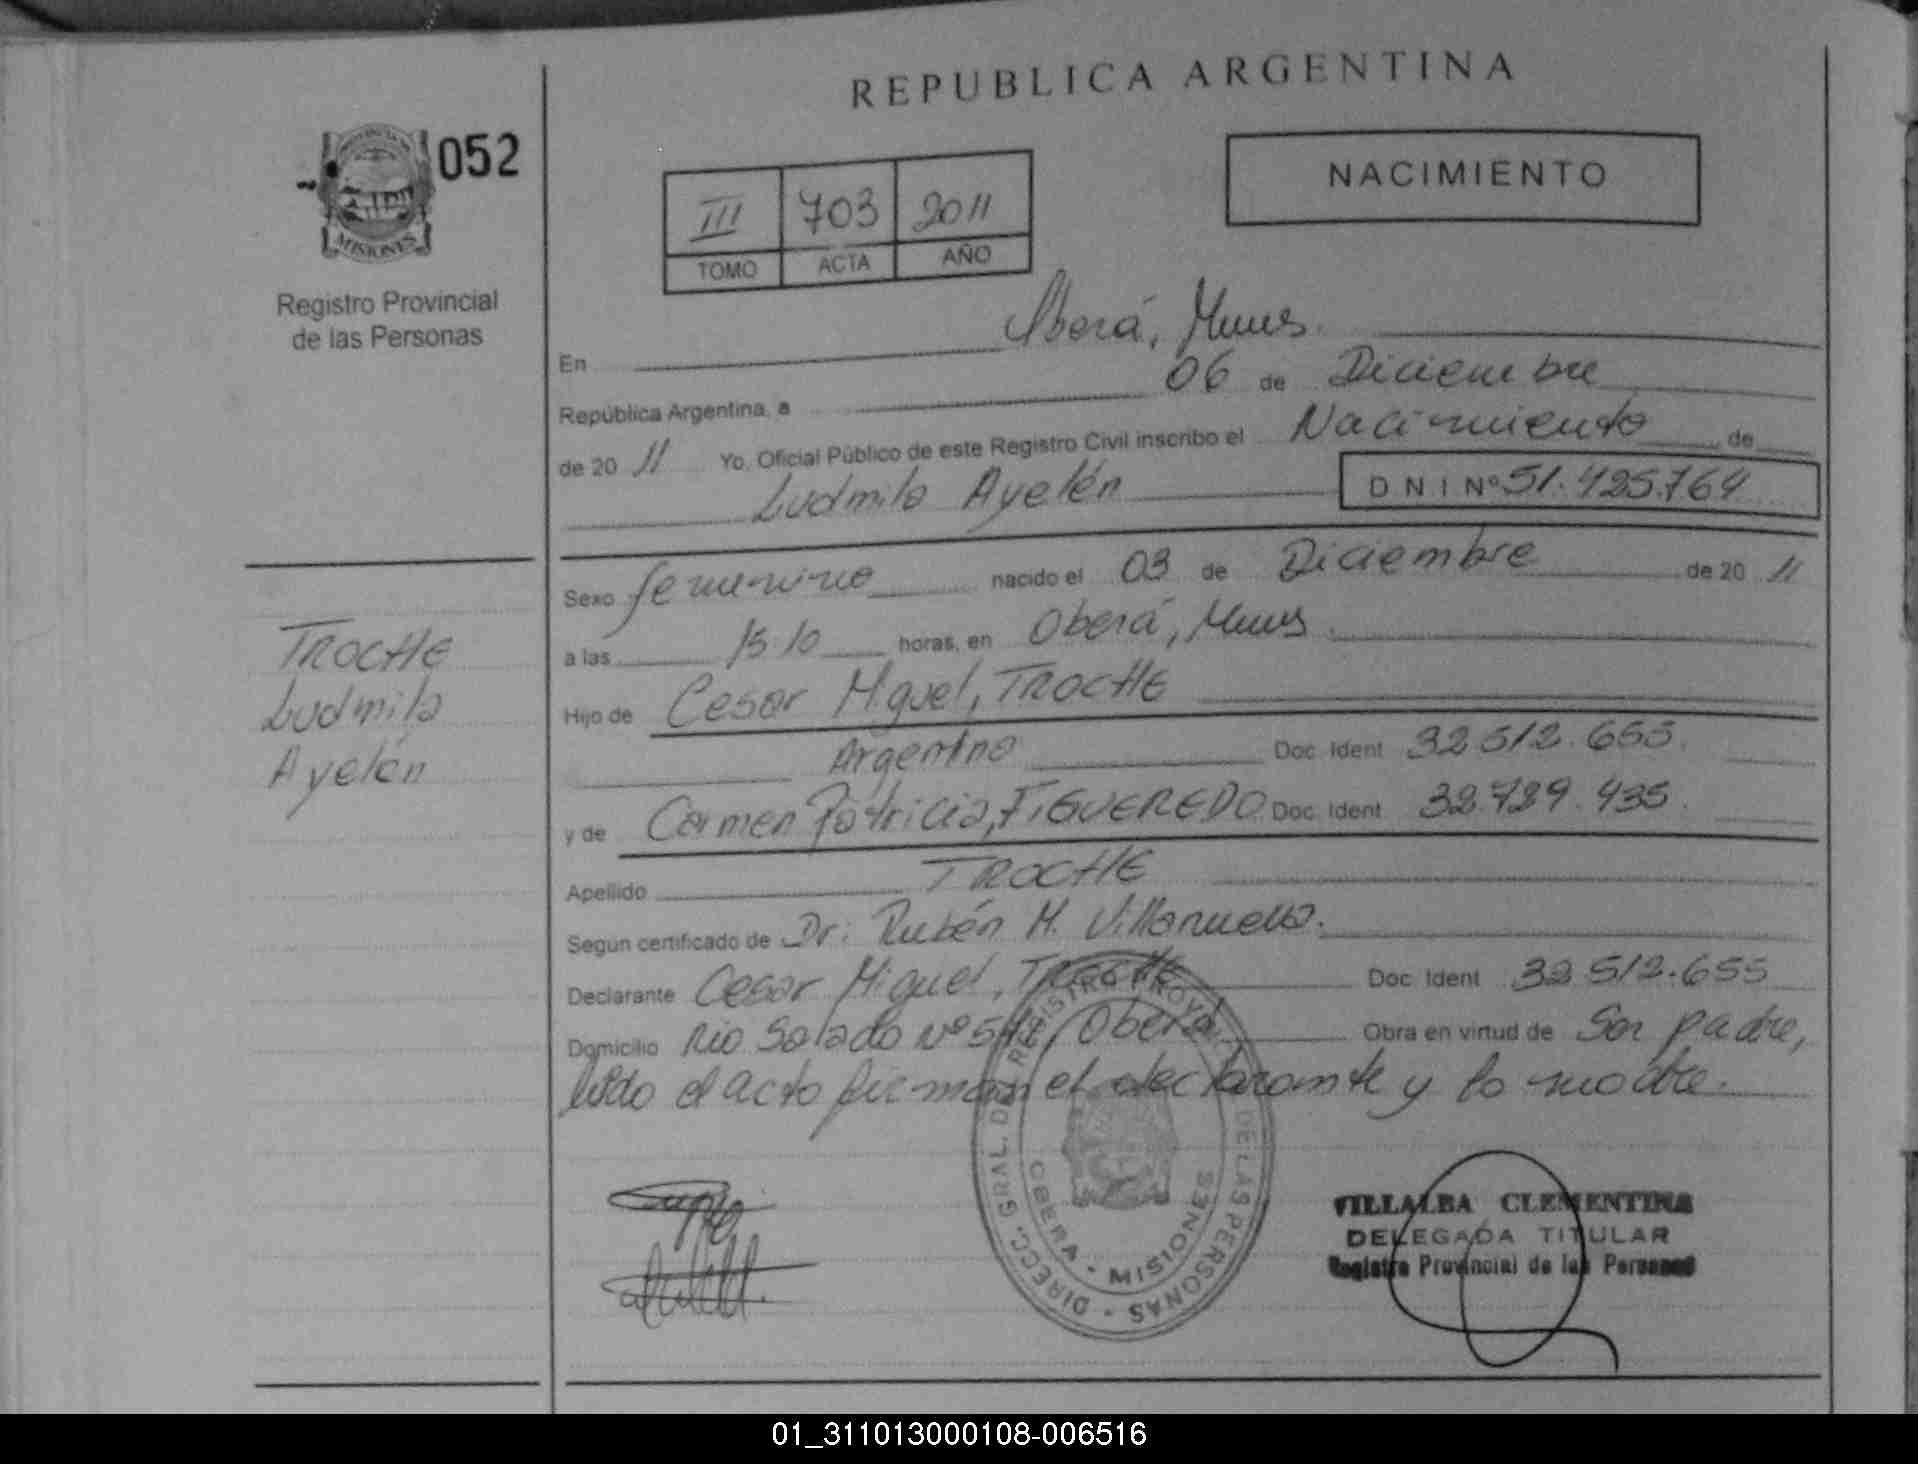 REPUBLICA ARGENTINA
PROVINCIA DE
MISIONES
052
Registro Provincial
de las Personas
NACIMIENTO
III 703 2011
TOMO ACTA AÑO
En Oberá, Mnes.
República Argentina, a 06 de Diciembre
de 20 11 Yo, Oficial Público de este Registro Civil inscribo el Nacimiento de
Ludmila Ayelén DNI Nº 51.425.764
Sexo femenino nacido el 03 de Diciembre de 20 11
a las 15 10 horas, en Oberá, Mnes.
Hijo de Cesar Miguel, TROCHE
Argentino Doc. Ident 32 512.655.
y de Carmen Patricia, FIGUEREDO Doc. Ident 32.729.435.
Apellido TROCHE
Según certificado de Dr. Rubén H. Villanueva.
Declarante Cesar Miguel, TROCHE Doc. Ident 32 512.655
Domicilio Rio Salado Nº Oberá Obra en virtud de Ser padre,
leído el acto firman el declarante y la madre.
TROCHE
Ludmila
Ayelén
DIRECC. GRAL. DEL REGISTRO PROVINCIAL DE LAS PERSONAS
OBERA - MISIONES
VILLALBA CLEMENTINA
DELEGADA TITULAR
Registro Provincial de las Personas
01_311013000108-006516